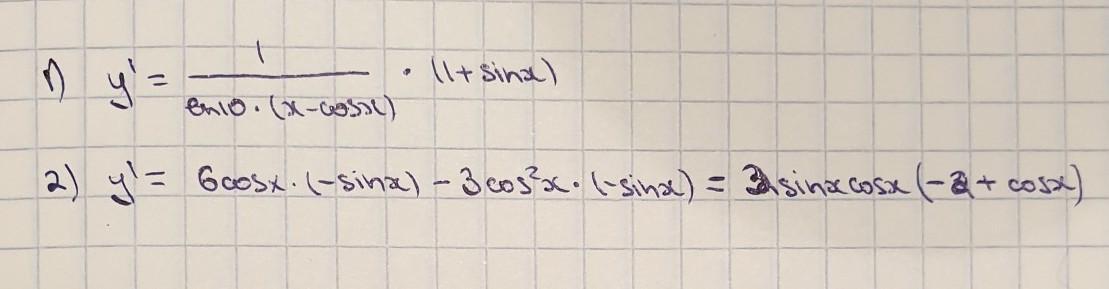 1) y' = 1/(ln10 · (x-cosx)) · (1+sinx)
2) y' = 6cosx · (-sinx) - 3cos²x · (-sinx) = 3sinxcosx(-2 + cosx)